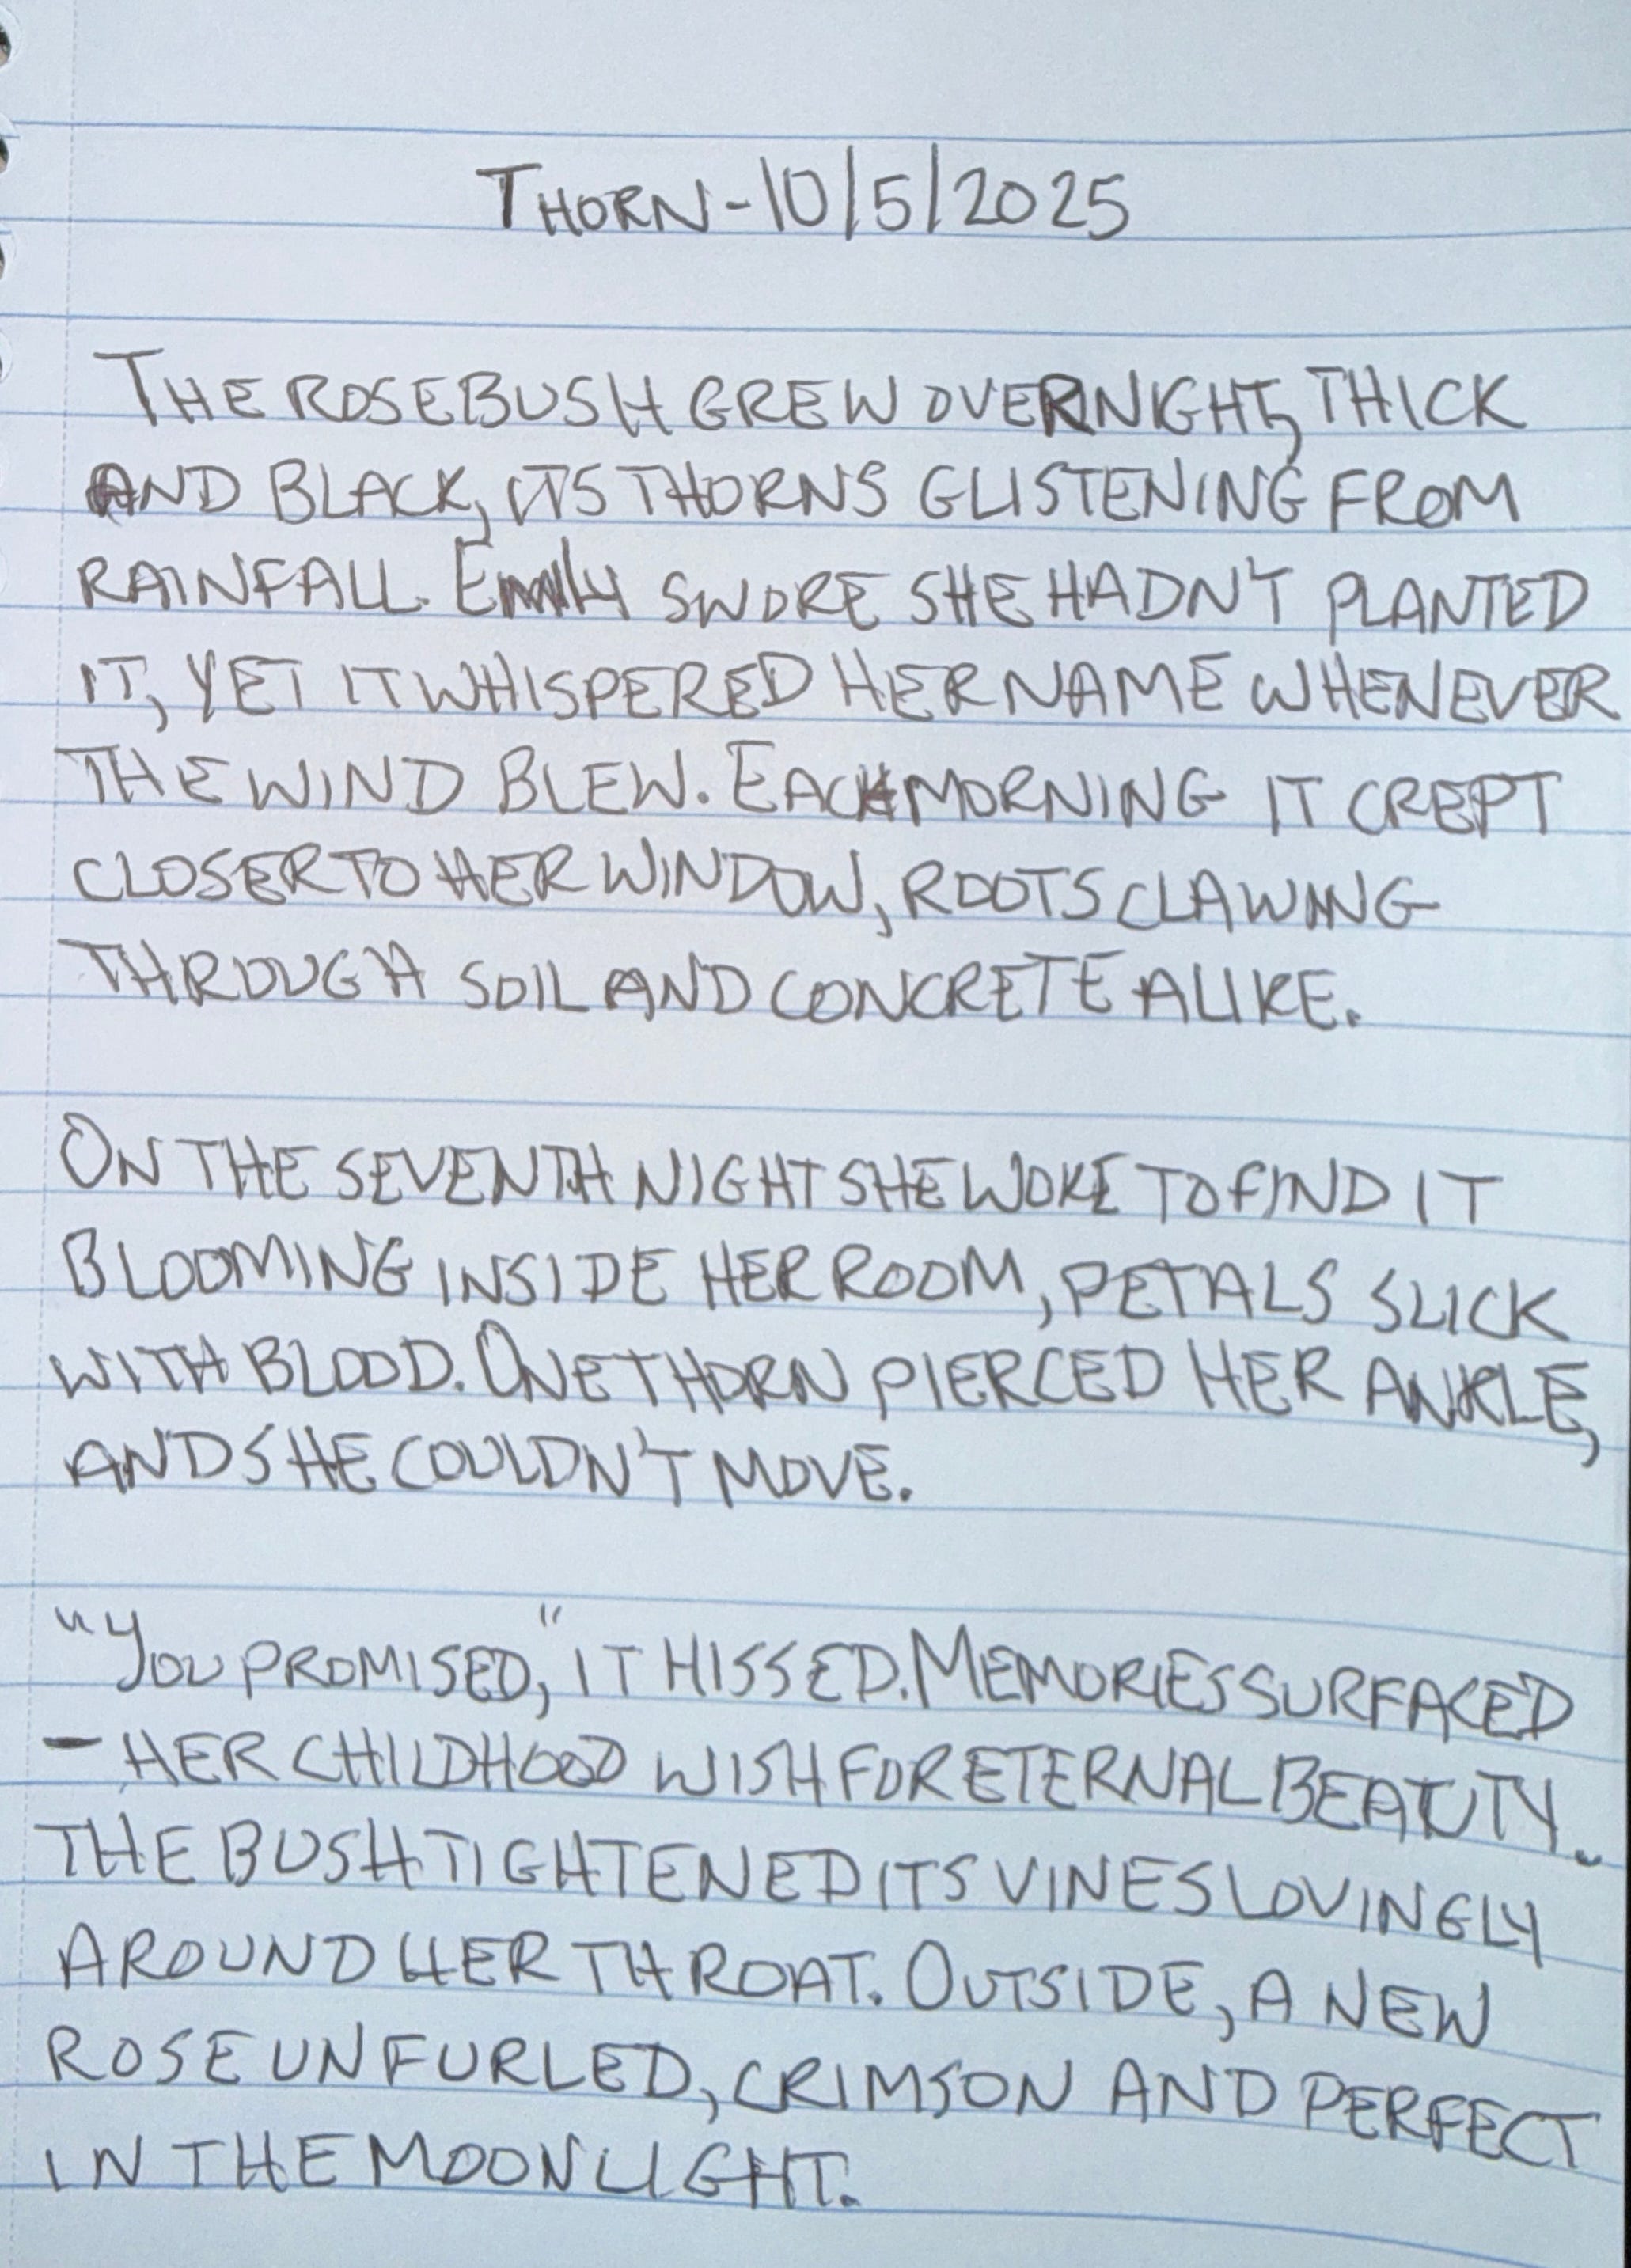 THORN-10/5/2025
THE ROSEBUSH GREW OVERNIGHT, THICK
AND BLACK, ITS THORNS GLISTENING FROM
RAINFALL. EMILY SWORE SHE HADN'T PLANTED
IT, YET IT WHISPERED HER NAME WHENEVER
THE WIND BLEW. EACH MORNING IT CREPT
CLOSER TO HER WINDOW, ROOTS CLAWING
THROUGH SOIL AND CONCRETE ALIKE.
ON THE SEVENTH NIGHT SHE WOKE TO FIND IT
BLOOMING INSIDE HER ROOM, PETALS SLICK
WITH BLOOD. ONE THORN PIERCED HER ANKLE,
AND SHE COULDN'T MOVE.
"YOU PROMISED," IT HISSED. MEMORIES SURFACED
- HER CHILDHOOD WISH FOR ETERNAL BEAUTY.
THE BUSH TIGHTENED ITS VINES LOVINGLY
AROUND HER THROAT. OUTSIDE, A NEW
ROSE UNFURLED, CRIMSON AND PERFECT
IN THE MOONLIGHT.